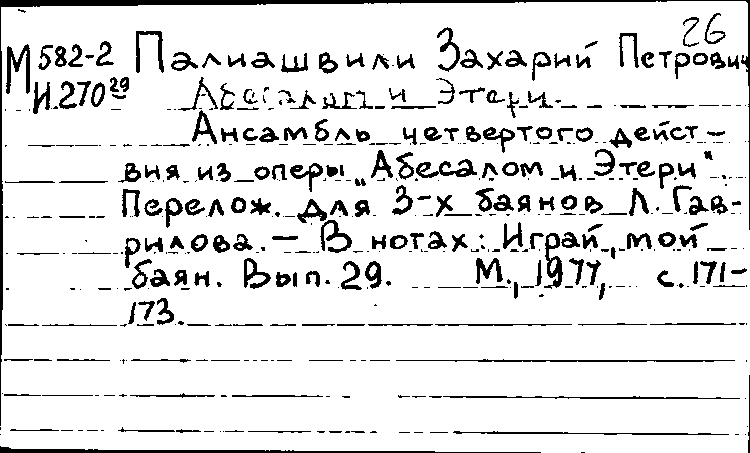 26
М 582-2 Палиашвили Захарий Петрович
И.270 29 Абесалом и Этери.
Ансамбль четвертого дейст-
вия из оперы „Абесалом и Этери".
Перелож. для 3-х баянов Л. Гав-
рилова. — В нотах: Играй, мой
баян. Вып. 29. М., 1977, с. 171-
173.